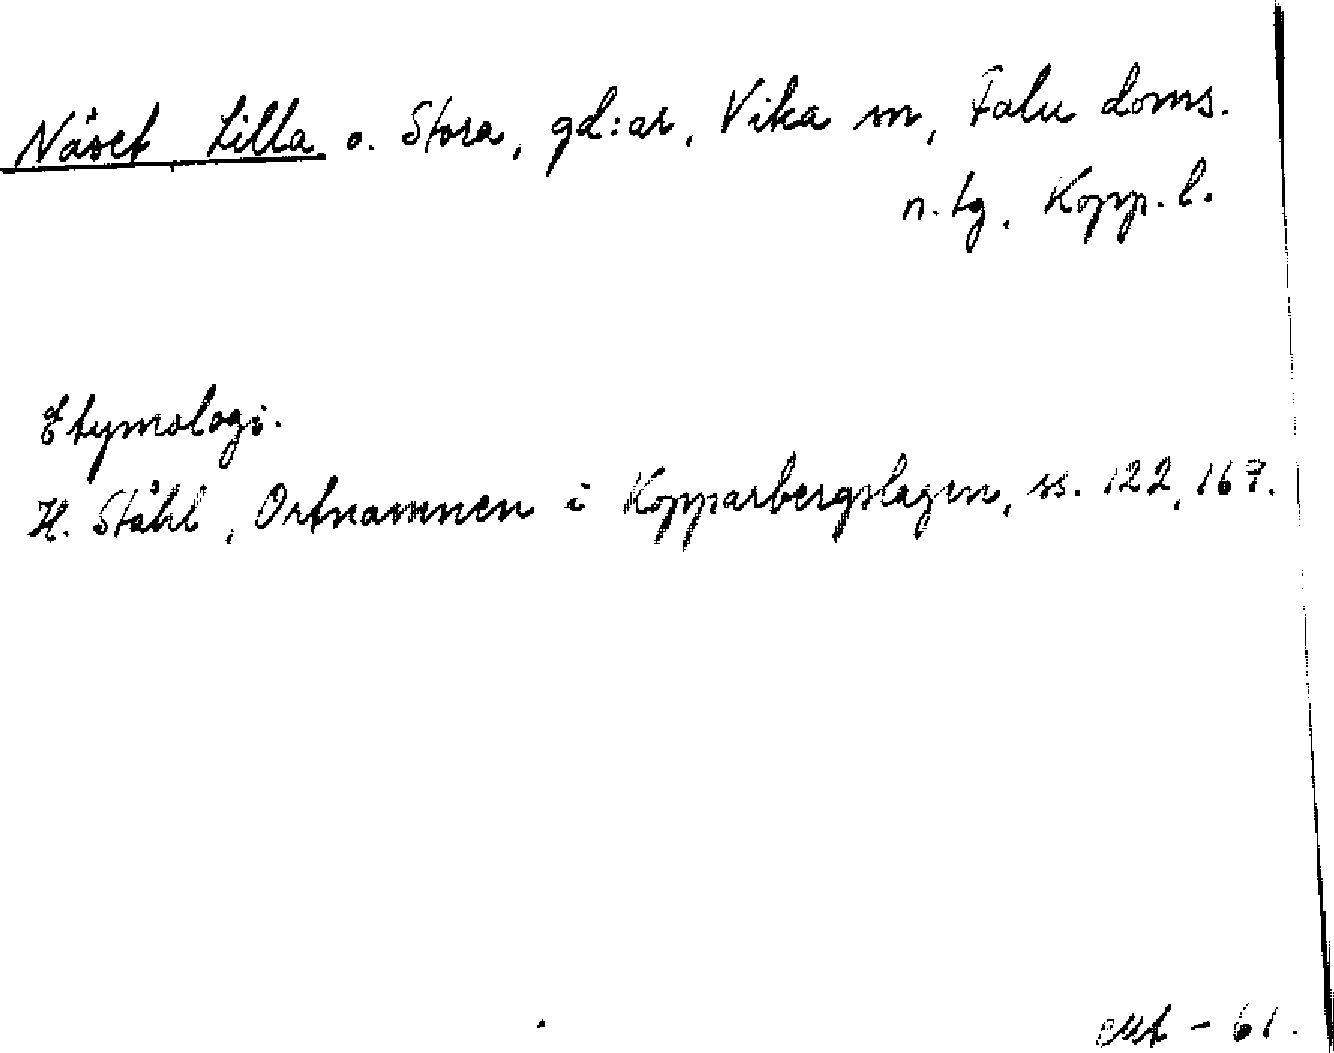 Näset Lilla o. Stora, gd:ar, Vika sn, Falu doms.
n. tg, Kopp. l.
Etymologi.
H. Ståhl, Ortnamnen i Kopparbergslagen, ss. 122, 167.
- 61.